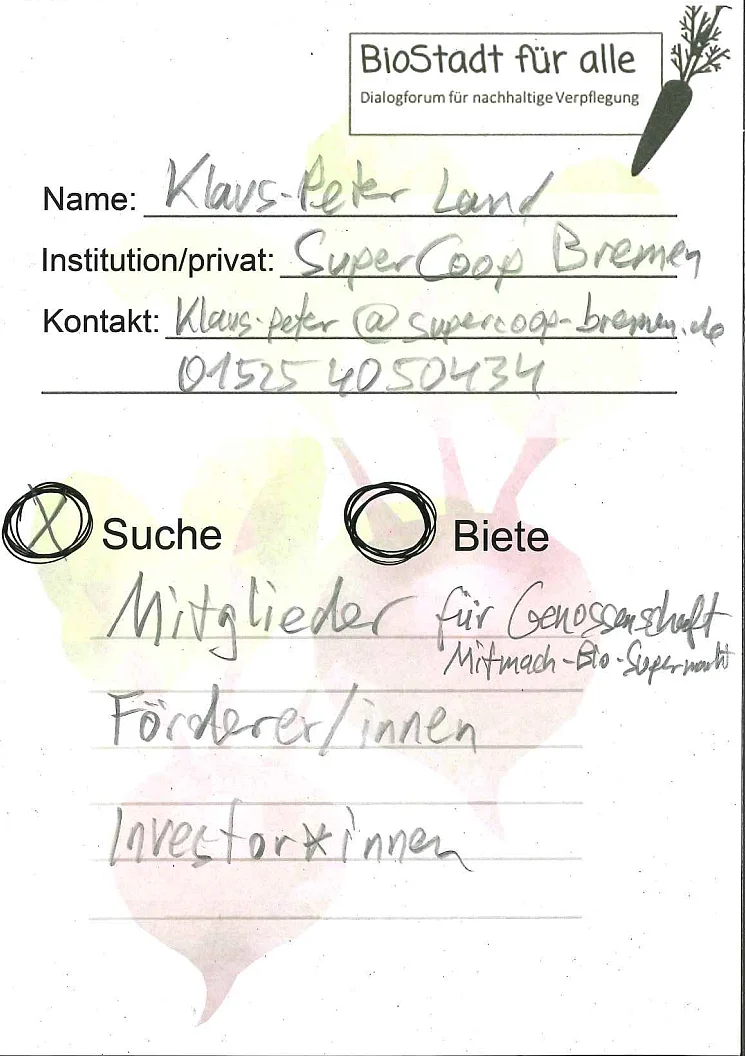 BioStadt für alle
Dialogforum für nachhaltige Verpflegung
Name: Klaus-Peter Land
Institution/privat: SuperCoop Bremen
Kontakt: Klaus-Peter@supercoop-bremen.de
01525 4050434
X Suche
Biete
Mitglieder für Genossenschaft
Mitmach-Bio-Supermarkt
Förderer/innen
Investor*innen